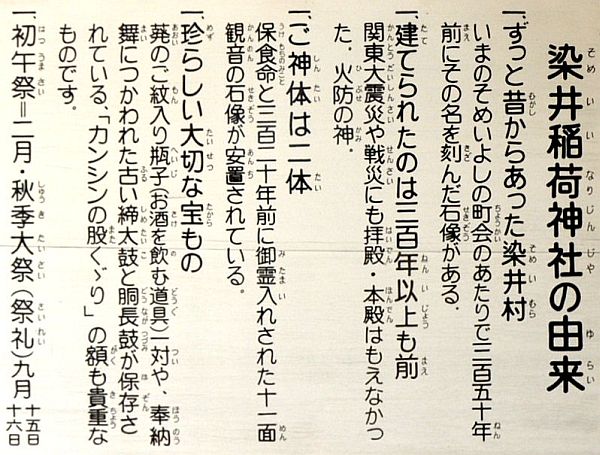 染井稲荷神社の由来
一、ずっと昔からあった染井村
いまのそめいよしの町会のあたりで三百五十年
前にその名を刻んだ石像がある。
一、建てられたのは三百年以上も前
関東大震災や戦災にも拝殿・本殿はもえなかっ
た。火防の神。
一、ご神体は二体
保食命と三百二十年前に御霊入れされた十一面
観音の石像が安置されている。
一、珍らしい大切な宝もの
葵のご紋入り瓶子(お酒を飲む道具)一対や、奉納
舞につかわれた古い締太鼓と胴長鼓が保存さ
れている、「カンシンの股くゞり」の額も貴重な
ものです。
一、初午祭＝二月・秋季大祭(祭礼)九月 十五日 十六日